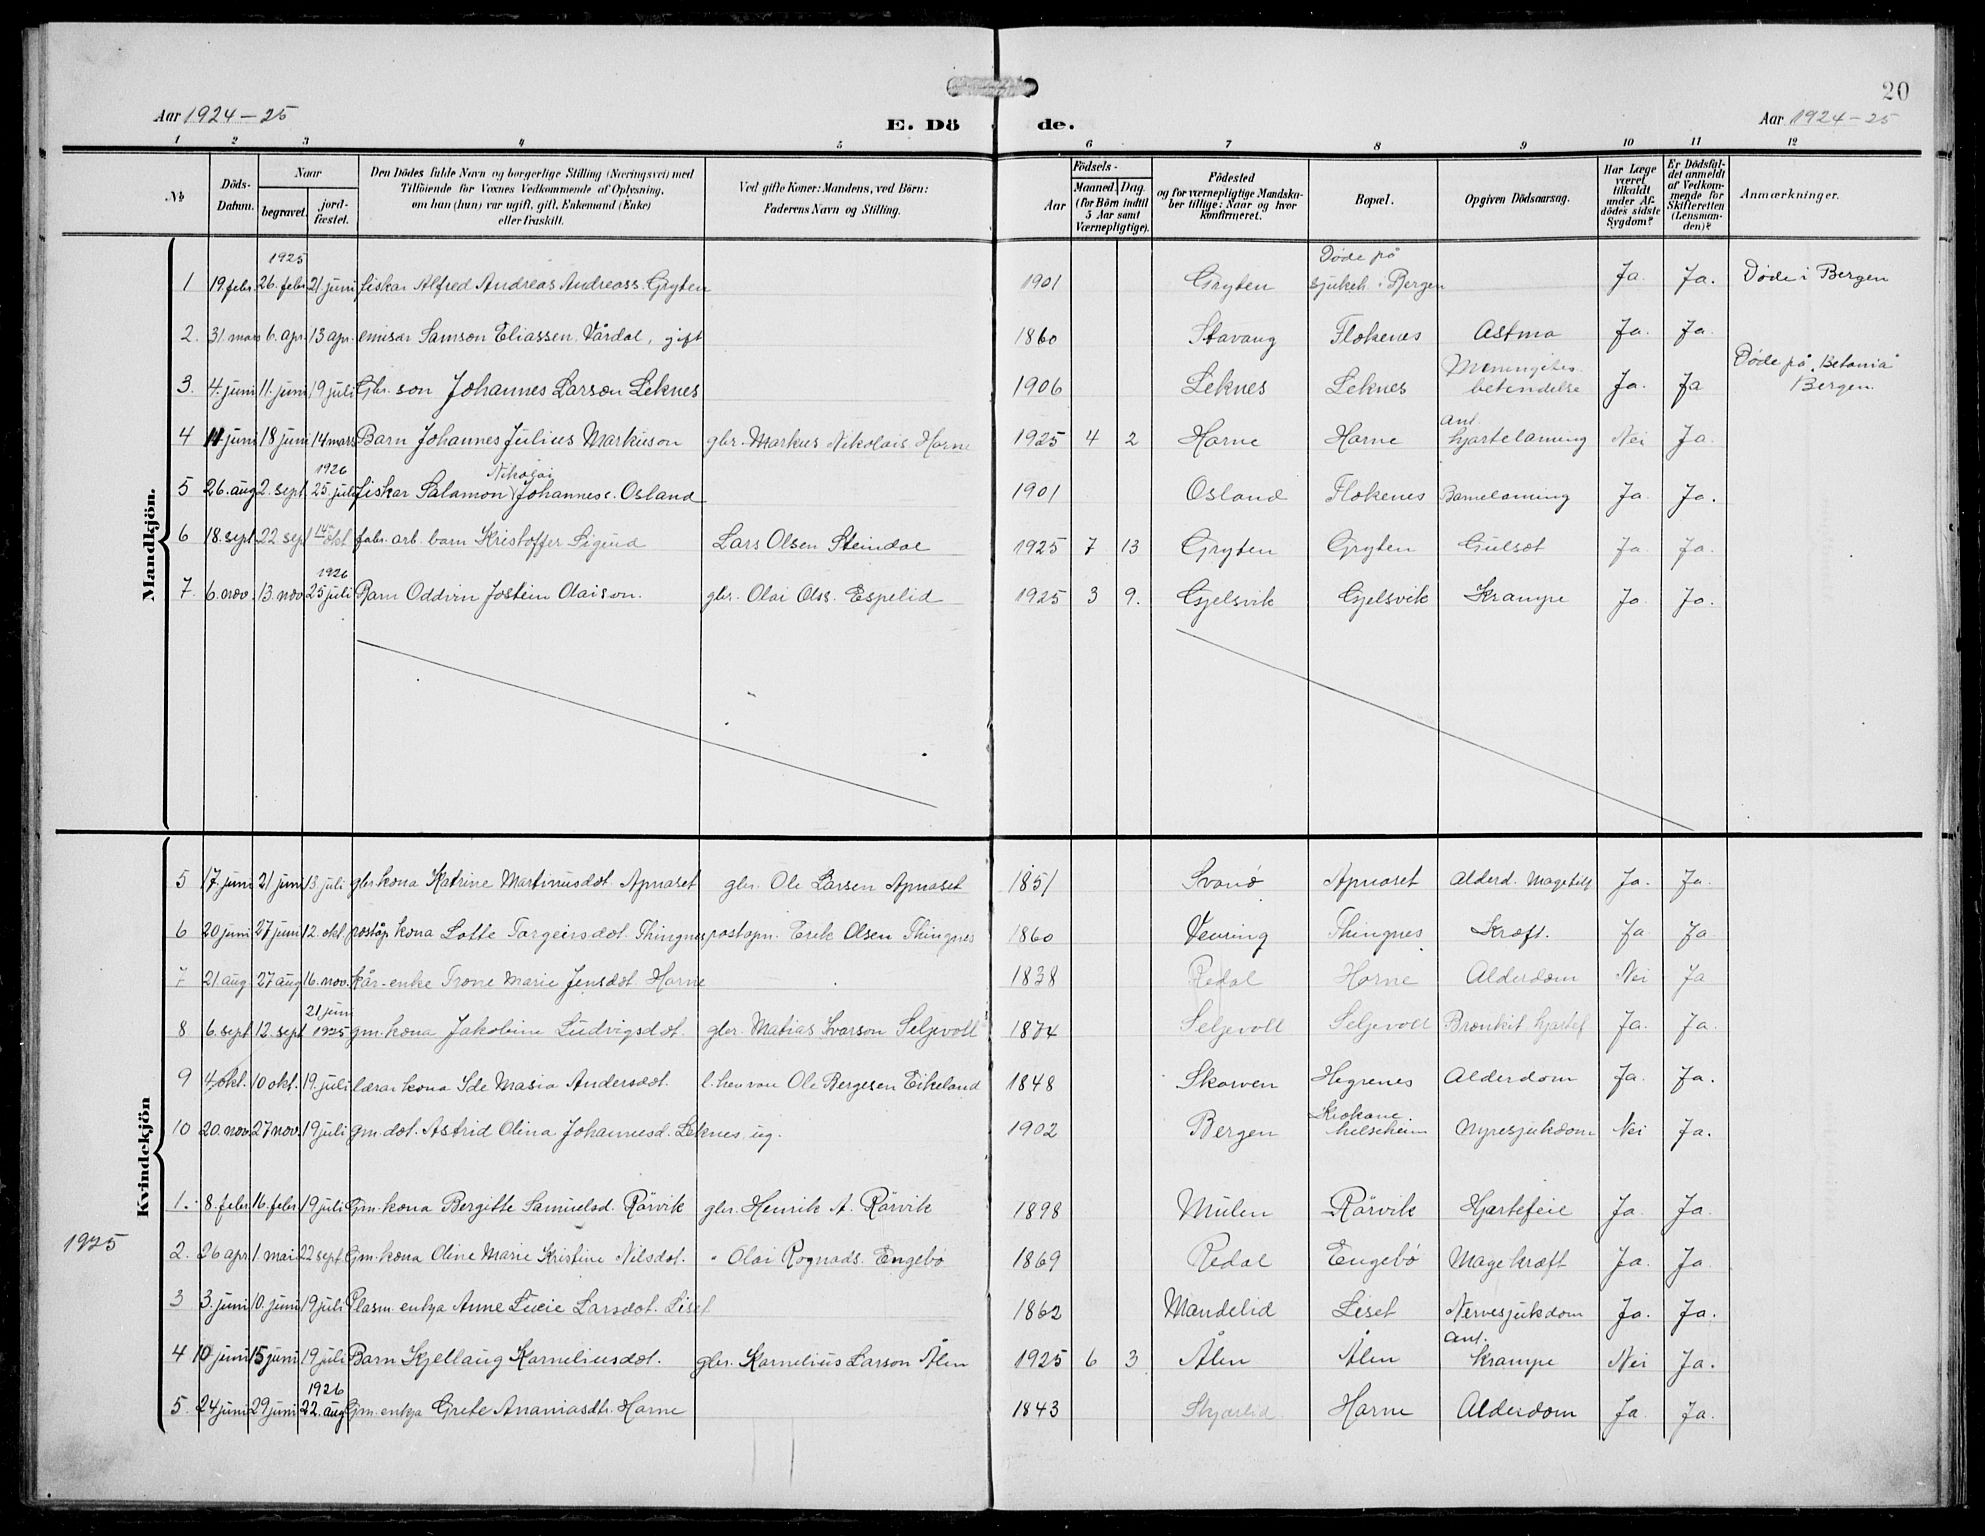 20
Aar 1924-25
E. Dö de.
Aar 1924-25
1 2 3 4 5 6 7 8 9 10 11 12
No
Döds-Datum.
Naar
begravet.
jord-fæstet.
Den Dödes fulde Navn og borgerlige Stilling (Næringsvei) med
Tilföiende for Voxnes Vedkommende af Oplysning,
om han (hun) var ugift, gift, Enkemand (Enke)
eller fraskilt.
Ved gifte Koner: Mandens, ved Börn:
Faderens Navn og Stilling.
Födsels-
Aar
Maaned. Dag.
(for Börn indtil
5 Aar samt
Værnepligtige).
Födested
og for værnepligtige Mandska-
ber tillige: Naar og hvor
konfirmeret.
Bopæl.
Opgiven Dödsaarsag.
Har Læge
været
tilkaldt
under Af-
dödes sidste
Sygdom?
Er Dödsfal-
det anmeldt
af Vedkom-
mende for
Skifteretten
(Lensman-
den)?
Anmærkninger.
Mandkjön.
1925
Døde på
1 19. febr. 26. febr 21 juni fiskar Alfred Andreas Andreass. Gryten 1901 Gryten sjukeh. i Bergen Ja. Ja. Døde i Bergen
2. 31 mars 6. apr. 13 apr. emisær Samson Eliassen Vårdal, gift 1860 Stavang Flokenes Astma Ja. Ja.
3. 4. juni 11. juni 19 juli Gbr. son Johannes Larson Leknes 1906 Leknes Leknes betendelse Ja. Ja Døde på "Betania" Bergen
4 11 juni 18 juni 14 mars Barn Johannes Julius Markuson gbr. Markus Nikolais. Horne 1925 4 2 Horne Horne ant. hjartelaming Nei Ja.
1926
Nikolai
5 26. aug 2. sept. 25 juli fiskar Salamon Johannes. Osland 1901 Osland Flokenes Barnelaming Ja. Ja.
6 18. sept. 22 sept 14 okt fabr. arb. barn Kristoffer Sigurd Lars Olsen Steindal 1925 7 13 Gryten Gryten Gulsot Ja. Ja.
1926
7. 6. nov. 13. nov 25 juli Barn Oddvin Jostein Olaison. gbr. Olai Olss. Espelid 1925 3 9. Gjelsvik Gjelsvik Krampe Ja Ja.
Kvindekjön
5 17. juni 21 juni 13 juli gbr kona Katrine Martinusdot. Apnaset gbr. Ole Larsen Apnaset 1851 Svanö Apnaset Alderd. Ja. Ja.
6 20 juni 27 juni 12. okt. poståp. kona Lotte Torgeirsdot. Thingnes postopn. Erik Olsen Thingnes 1860 Vevring Thingnes Kræft. Ja. Ja
7 21 aug. 27 aug 16. nov. kår-enke Trone Marie Jensdot. Horne 1838 Redal Horne Alderdom Nei Ja
21 juni
8 6. sept 12. sept 1925 gm. kona Jakobine Ludvigsdot. gbr. Matias Ivarson Seljevoll 1874 Seljevoll Seljevoll Ja. Ja.
9 4. okt. 10 okt. 19. juli lærar kona Ide Masia Andersdot. Ole Bergesen Eikeland 1848 Skorven Hegrenes Alderdom Ja. Ja.
10 20. nov. 27 nov. 19 juli gm. dot. Astrid Olina Johannesd. Leknes ug. 1902 Bergen helseheim Nyresjukdom Nei Ja.
1925
1. 8. febr 16. febr 19 juli Gm. kona Bergitte Samuelsd. Rörvik gbr. Henrik A. Rörvik 1898 Mulen Rörvik Hjartefeil Ja. Ja.
2. 26 apr. 1. mai 22 sept. Gm. kona Oline Marie Kristine Nilsdot. " Olai Rognads. Engebø 1869 Redal Engebø Magekræft Ja. Ja.
3 3. juni 10. juni 19 juli Plasm. enkja Anne Lucie Larsdot. Liset 1862 Mandelid Liset Nervesjukdom Ja. Ja.
4 10 juni 15 juni 19 juli Barn Kjellaug Korneliusdot. gbr. Kornelius Larson Ålen 1925 6 3 Ålen Ålen ant. krampe Nei Ja.
1926
5. 24 juni 29 juni 22. aug Gm. enkja Grete Ananiasdtr. Horne 1843 Skjærlid Horne Alderdom Ja. Ja.